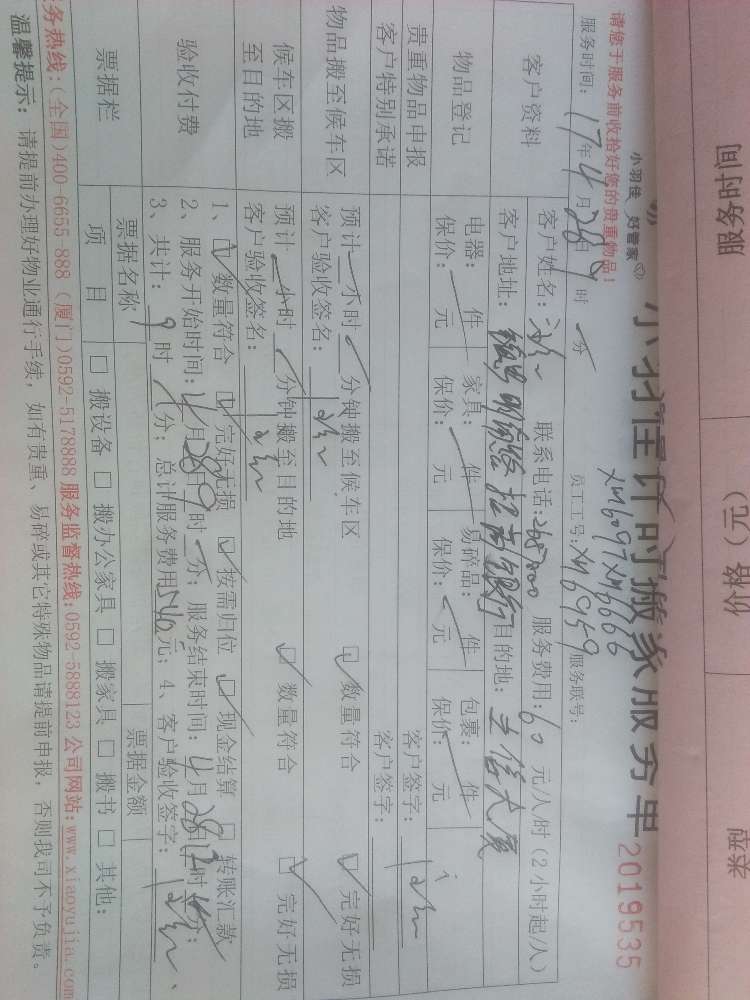 服务时间 价格（元） 类型
小羽佳 好管家
小羽佳计时搬家服务单 2019535
请您于服务前收拾好您的贵重物品！
员工工号: XM6097 XM6666 XM6959 服务联号:
服务时间: 17年4月28日9时 分
客户资料 客户姓名: 联系电话: 服务费用: 60 元/人/时（2小时起/人）
客户地址: 招商银行 目的地: 大厦
物品登记 电器: 件 家具: 件 易碎品: 件 包裹: 件
保价: 元 保价: 元 保价: 元 保价: 元
贵重物品申报 客户签字:
客户特别承诺 客户签字:
物品搬至候车区 预计 小时 分钟搬至候车区 数量符合 完好无损
客户验收签名:
候车区搬至目的地 预计 小时 分钟搬至目的地 数量符合 完好无损
客户验收签名:
验收付费 1、 数量符合 完好无损 按需归位 现金结算 转账汇款
2、服务开始时间: 4月28日9时 分; 服务结束时间: 4月28日 时 分;
3、共计: 9时 分; 总计服务费用540元; 4、客户验收签字: 、
票据栏 票据名称 票据金额
项目 搬设备 搬办公家具 搬家具 搬书 其他:
服务热线:(全国)400-6655-888 (厦门)0592-5178888 服务监督热线:0592-5888123 公司网站:www.xiaoyujia.com
温馨提示: 请提前办理好物业通行手续，如有贵重、易碎或其它特殊物品请提前申报，否则我司不予负责。